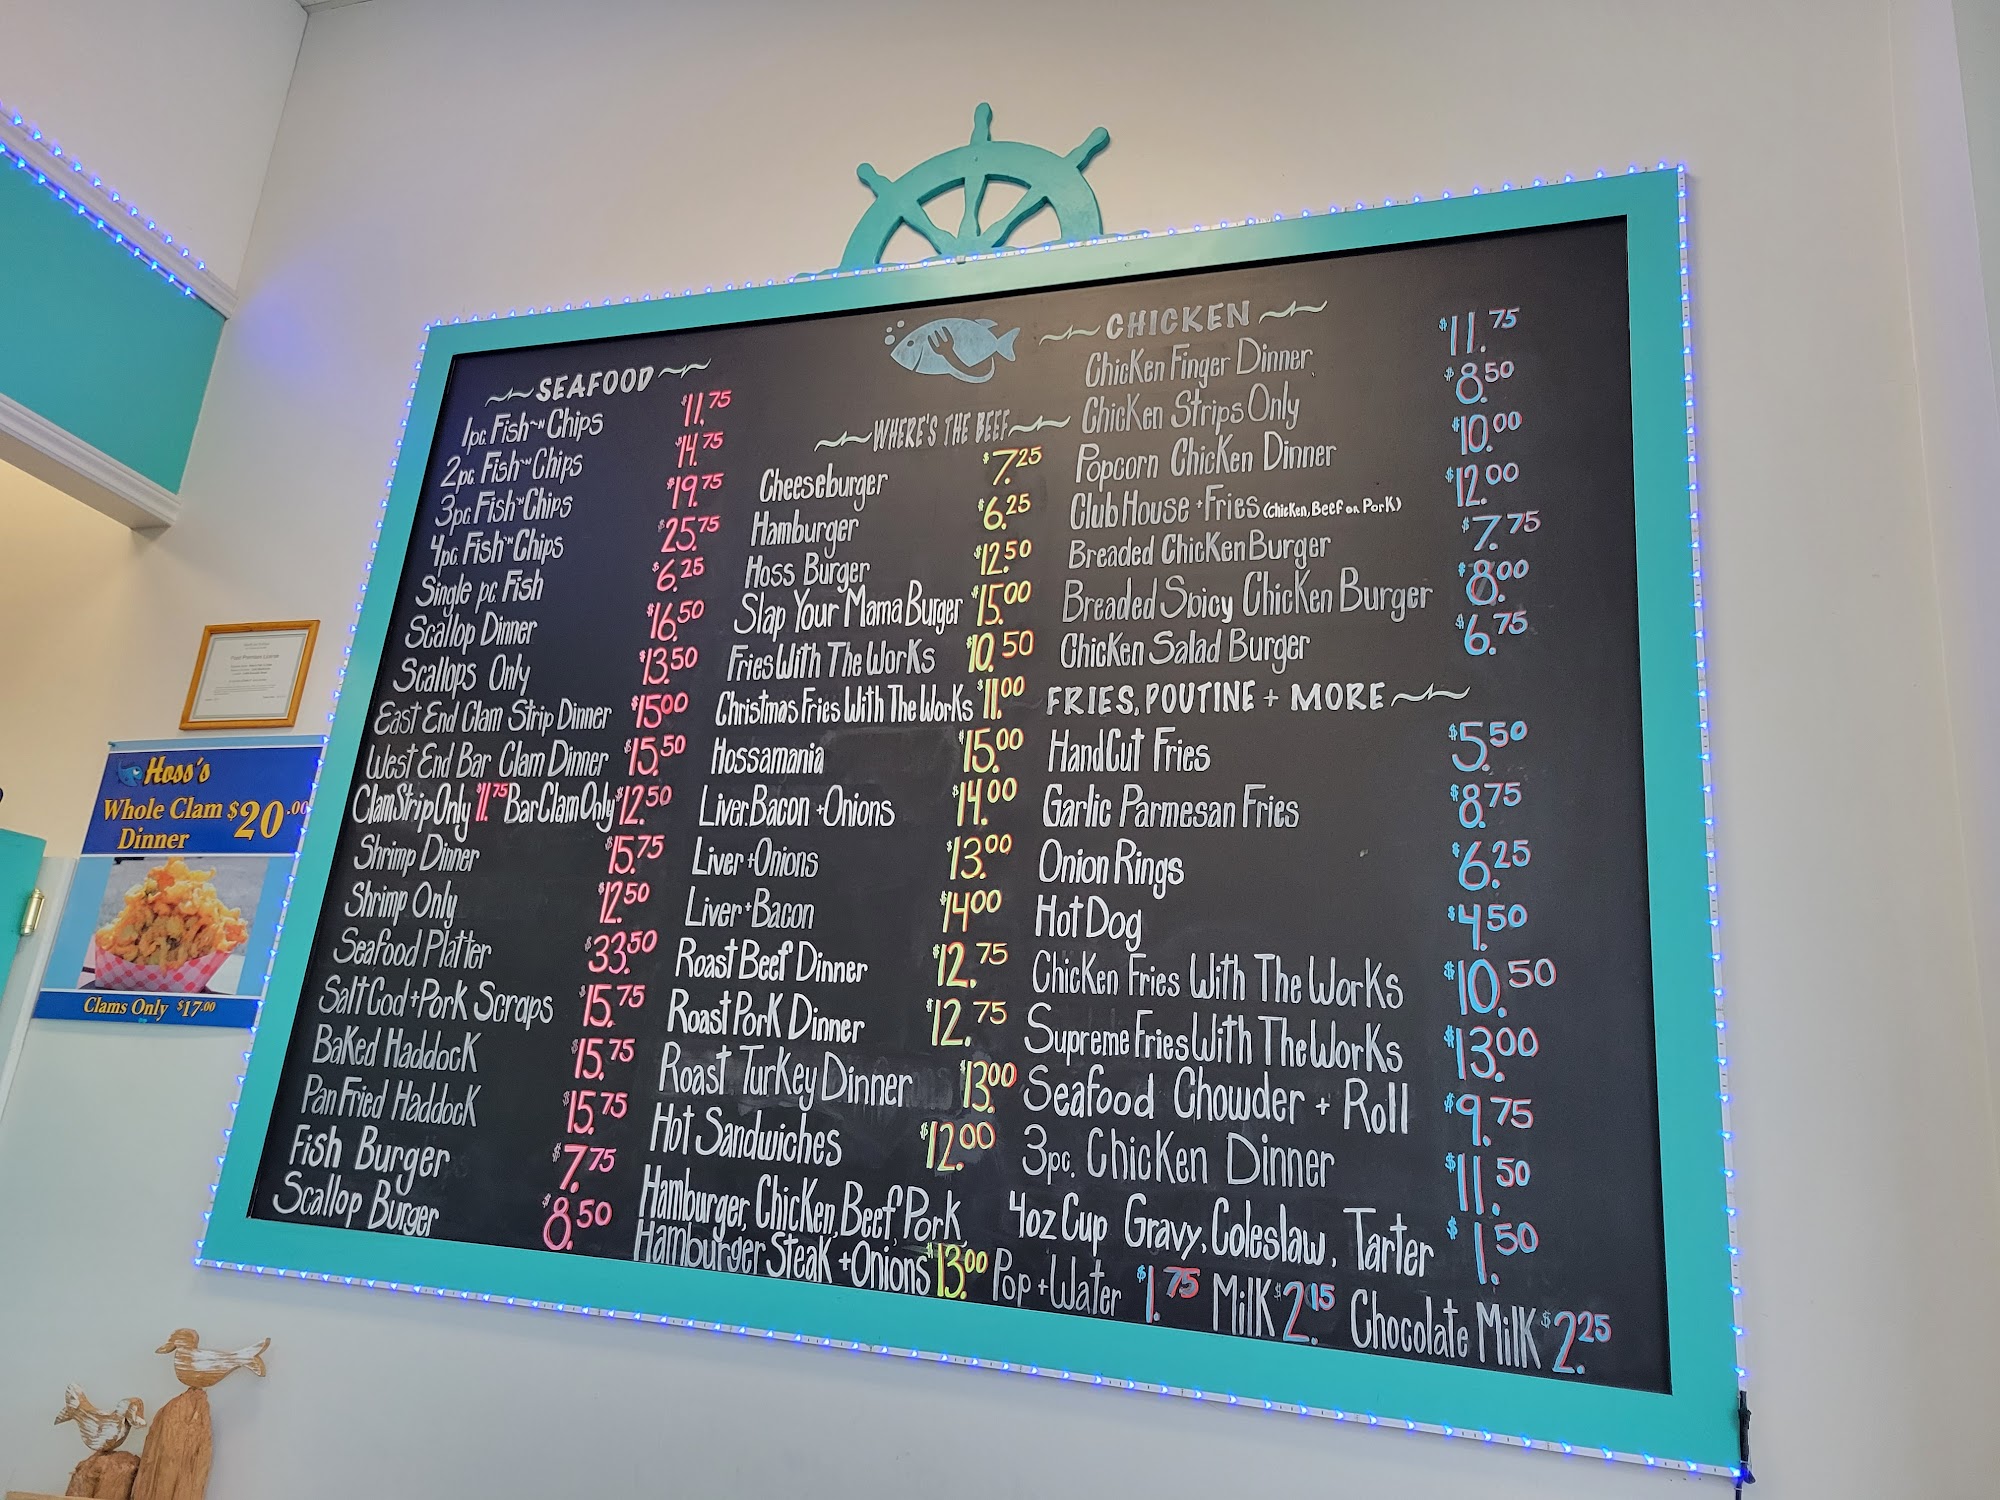 SEAFOOD
1pc. Fish~n Chips $11.75
2pc Fish~n Chips $14.75
3pc. Fish~n Chips $19.75
4pc. Fish~n Chips $25.75
Single pc Fish $6.25
Scallop Dinner $16.50
Scallops Only $13.50
East End Clam Strip Dinner $15.00
West End Bar Clam Dinner $15.50
Clam Strip Only $11.75 Bar Clam Only $12.50
Shrimp Dinner $15.75
Shrimp Only $12.50
Seafood Platter $33.50
Salt Cod + Pork Scraps $15.75
Baked Haddock $15.75
Pan Fried Haddock $15.75
Fish Burger $7.75
Scallop Burger $8.50
WHERE'S THE BEEF
Cheeseburger $7.25
Hamburger $6.25
Hoss Burger $12.50
Slap Your Mama Burger $15.00
Fries With The Works $10.50
Christmas Fries With The Works $11.00
Hossamania $15.00
Liver. Bacon + Onions $14.00
Liver + Onions $13.00
Liver + Bacon $14.00
Roast Beef Dinner $12.75
Roast Pork Dinner $12.75
Roast Turkey Dinner $13.00
Hot Sandwiches $12.00
Hamburger, Chicken, Beef, Pork
Hamburger Steak + Onions $13.00
CHICKEN
Chicken Finger Dinner $11.75
Chicken Strips Only $8.50
Popcorn Chicken Dinner $10.00
Club House + Fries (Chicken, Beef or Pork) $12.00
Breaded Chicken Burger $7.75
Breaded Spicy Chicken Burger $8.00
Chicken Salad Burger $6.75
FRIES, POUTINE + MORE
Hand Cut Fries $5.50
Garlic Parmesan Fries $8.75
Onion Rings $6.25
Hot Dog $4.50
Chicken Fries With The Works $10.50
Supreme Fries With The Works $13.00
Seafood Chowder + Roll $9.75
3pc. Chicken Dinner $11.50
4oz Cup Gravy, Coleslaw, Tarter $1.50
Pop + Water $1.75 Milk $2.15 Chocolate Milk $2.25
Hoss's
Whole Clam $20.00
Dinner
Clams Only $17.00